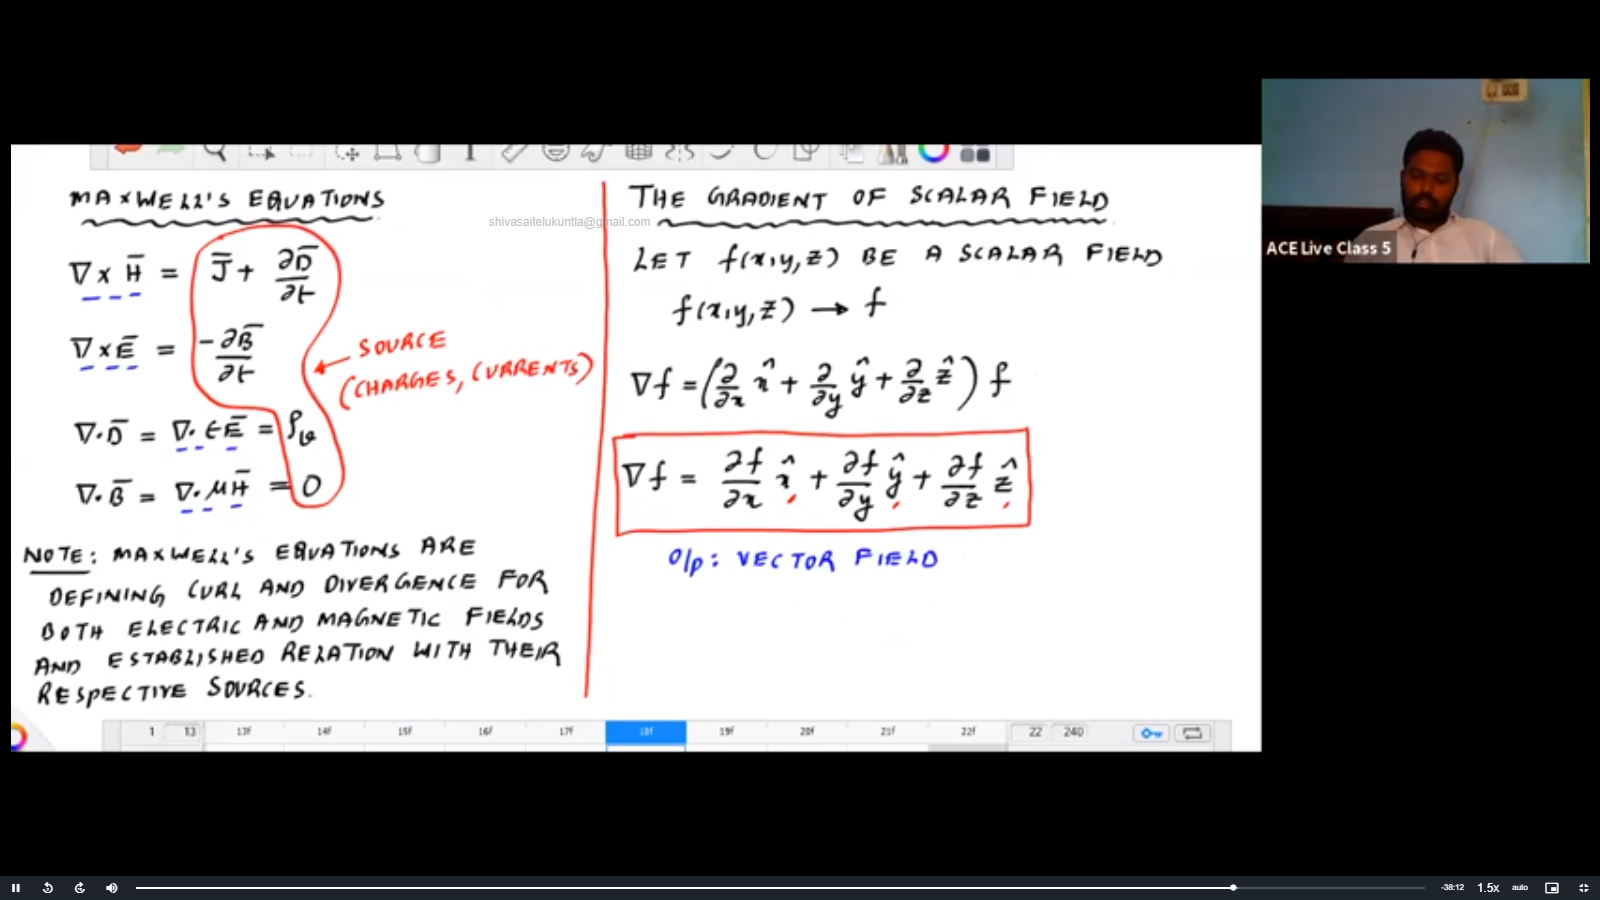 MAXWELL'S EQUATIONS
∇ × H̅ = J̅ + ∂D̅/∂t
∇ × E̅ = -∂B̅/∂t
SOURCE
(CHARGES, CURRENTS)
∇·D̅ = ∇·ϵE̅ = ρᵥ
∇·B̅ = ∇·μH̅ = 0
NOTE: MAXWELL'S EQUATIONS ARE
DEFINING CURL AND DIVERGENCE FOR
BOTH ELECTRIC AND MAGNETIC FIELDS
AND ESTABLISHED RELATION WITH THEIR
RESPECTIVE SOURCES.
shivasaitelukuntla@gmail.com
THE GRADIENT OF SCALAR FIELD
LET f(x,y,z) BE A SCALAR FIELD
f(x,y,z) → f
∇f = (∂/∂x x̂ + ∂/∂y ŷ + ∂/∂z ẑ) f
∇f = ∂f/∂x x̂ + ∂f/∂y ŷ + ∂f/∂z ẑ
O/P: VECTOR FIELD
ACE Live Class 5
1 13 13f 14f 15f 16f 17f 18f 19f 20f 21f 22f 22 240
-38:12 1.5x auto